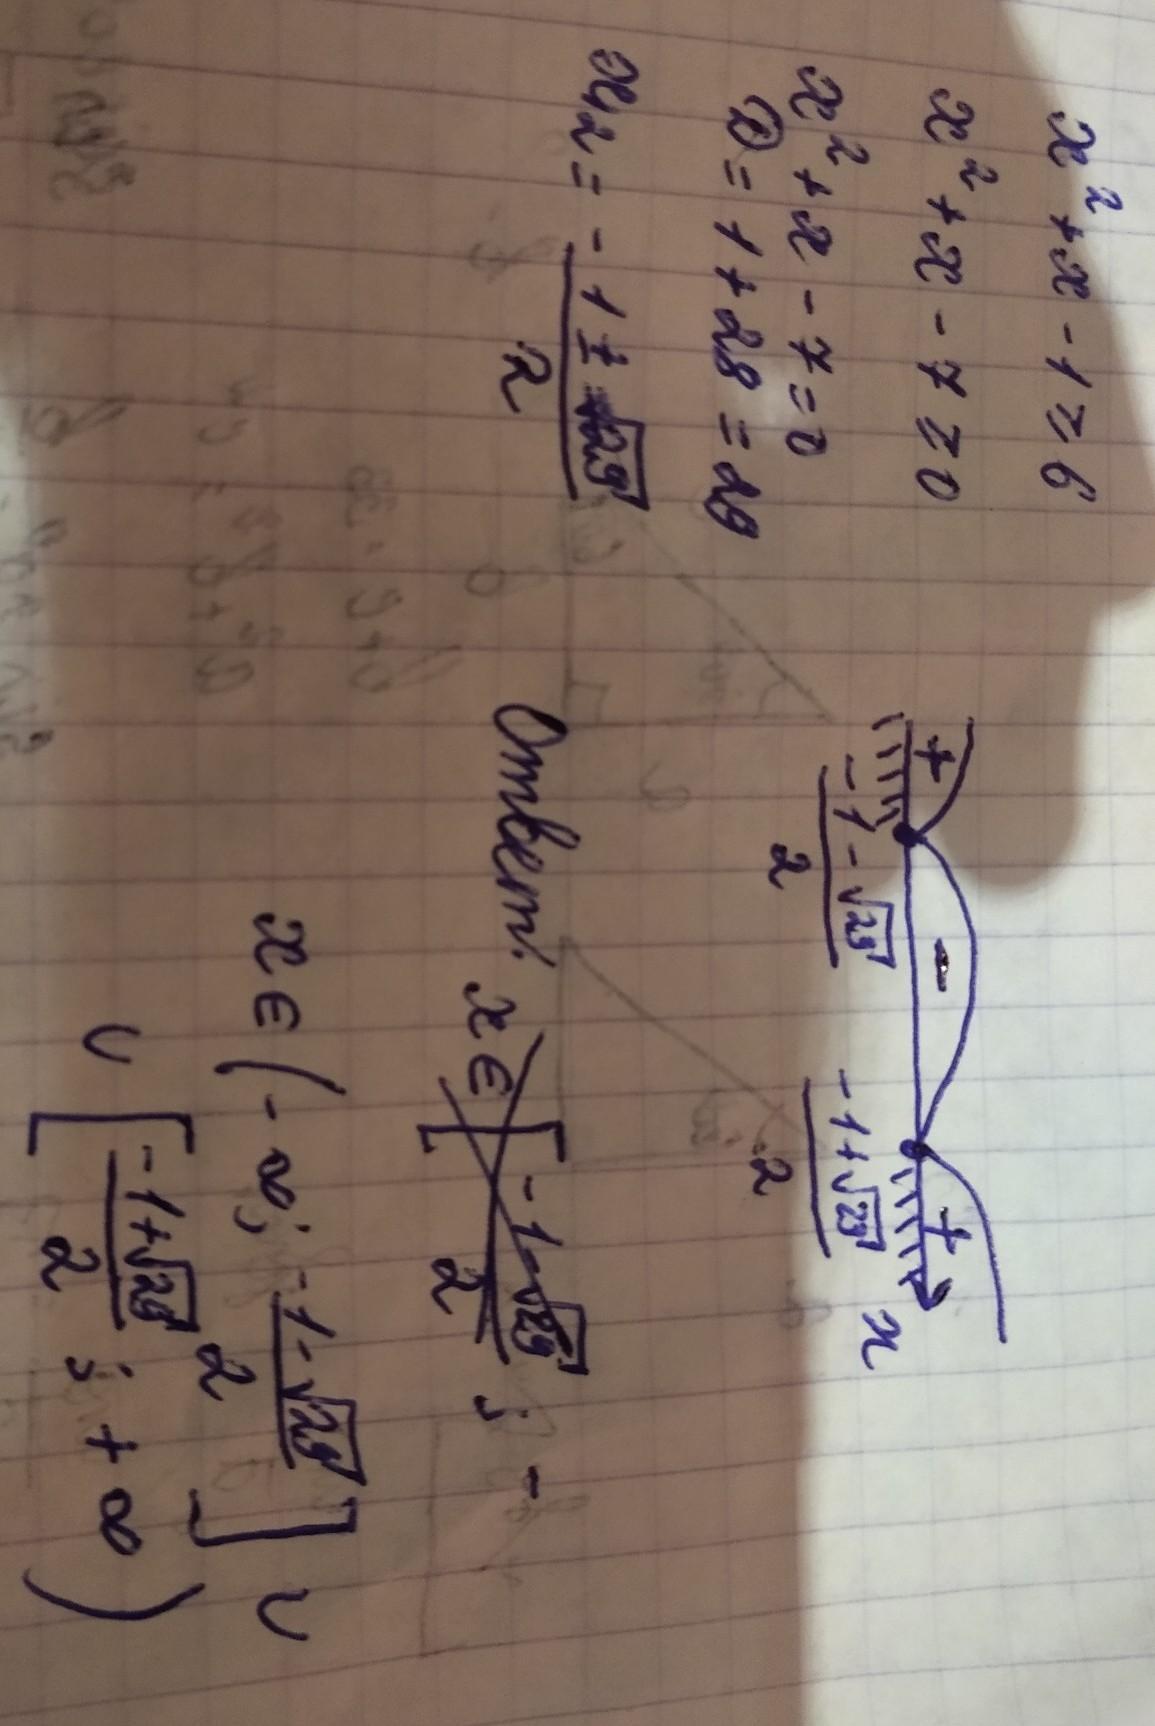 x² + x - 1 ≥ 6
x² + x - 7 ≥ 0
x² + x - 7 = 0
D = 1 + 28 = 29
x₁,₂ = (-1 ± √29)/2
+ - +
(-1 - √29)/2 (-1 + √29)/2 x
Ответ: x ∈ [(-1-√29)/2 ; -
x ∈ (-∞; (-1-√29)/2] ∪
∪ [(-1+√29)/2 ; +∞)